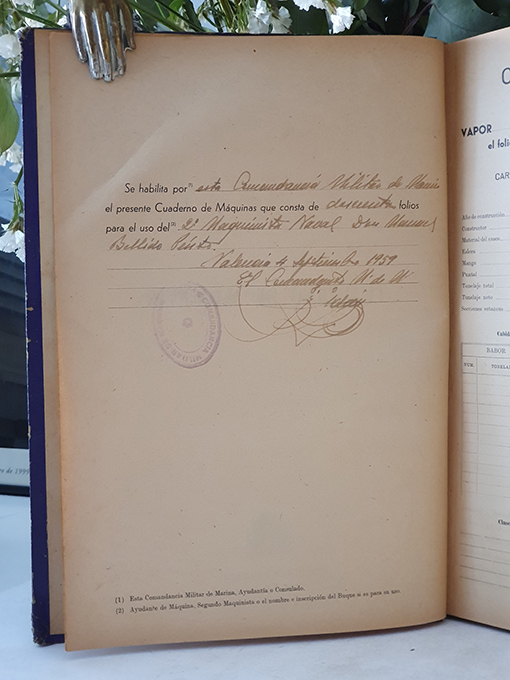 Se habilita por⁽¹⁾ esta Comandancia Militar de Marina
el presente Cuaderno de Máquinas que consta de doscientos folios
para el uso del⁽²⁾ 2º Maquinista Naval Don Manuel
Bellido
Valencia 4 Septiembre 1959
El Comandante M. de M.
COMANDANCIA MILITAR DE
(1) Esta Comandancia Militar de Marina, Ayudantía o Consulado.
(2) Ayudante de Máquina, Segundo Maquinista o al nombre e inscripción del Buque si es para su uso.
VAPOR
el foli
CAR
Año de construcción
Constructor
Material del casco
Eslora
Manga
Puntal
Tonelaje total
Tonelaje neto
Secciones estancas
BABOR
NUM. TONELA
ro de 1999